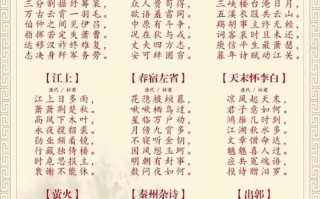 三分割据纡筹策，
万古云霄一羽毛。
伯仲之间见伊吕，
指挥若定失萧曹。
运移汉祚终难复，
志决身歼军务劳。
众人贵苟得，
欲语羞雷同。
中原有斗争，
况在狄与戎。
丈夫四方志，
安可辞固穷。
三峡楼台淹日月，
五溪衣服共云山。
羯胡事主终无赖，
词客哀时且未还。
庾信平生最萧瑟，
暮年诗赋动江关。
【江上】
唐代 / 杜甫
江上日多雨，
萧萧荆楚秋。
高风下木叶，
永夜揽貂裘。
勋业频看镜，
行藏独倚楼。
时危思报主，
衰谢不能休。
【春宿左省】
唐代 / 杜甫
花隐掖垣暮，
啾啾栖鸟过。
星临万户动，
月傍九霄多。
不寝听金钥，
因风想玉珂。
明朝有封事，
数问夜如何。
【天末怀李白】
唐代 / 杜甫
凉风起天末，
君子意如何。
鸿雁几时到，
江湖秋水多。
文章憎命达，
魑魅喜人过。
应共冤魂语，
投诗赠汨罗。
【萤火】
【秦州杂诗】
【出郭】